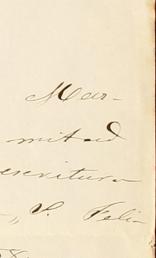 Mar-
mitad
escritura
S. Feli-